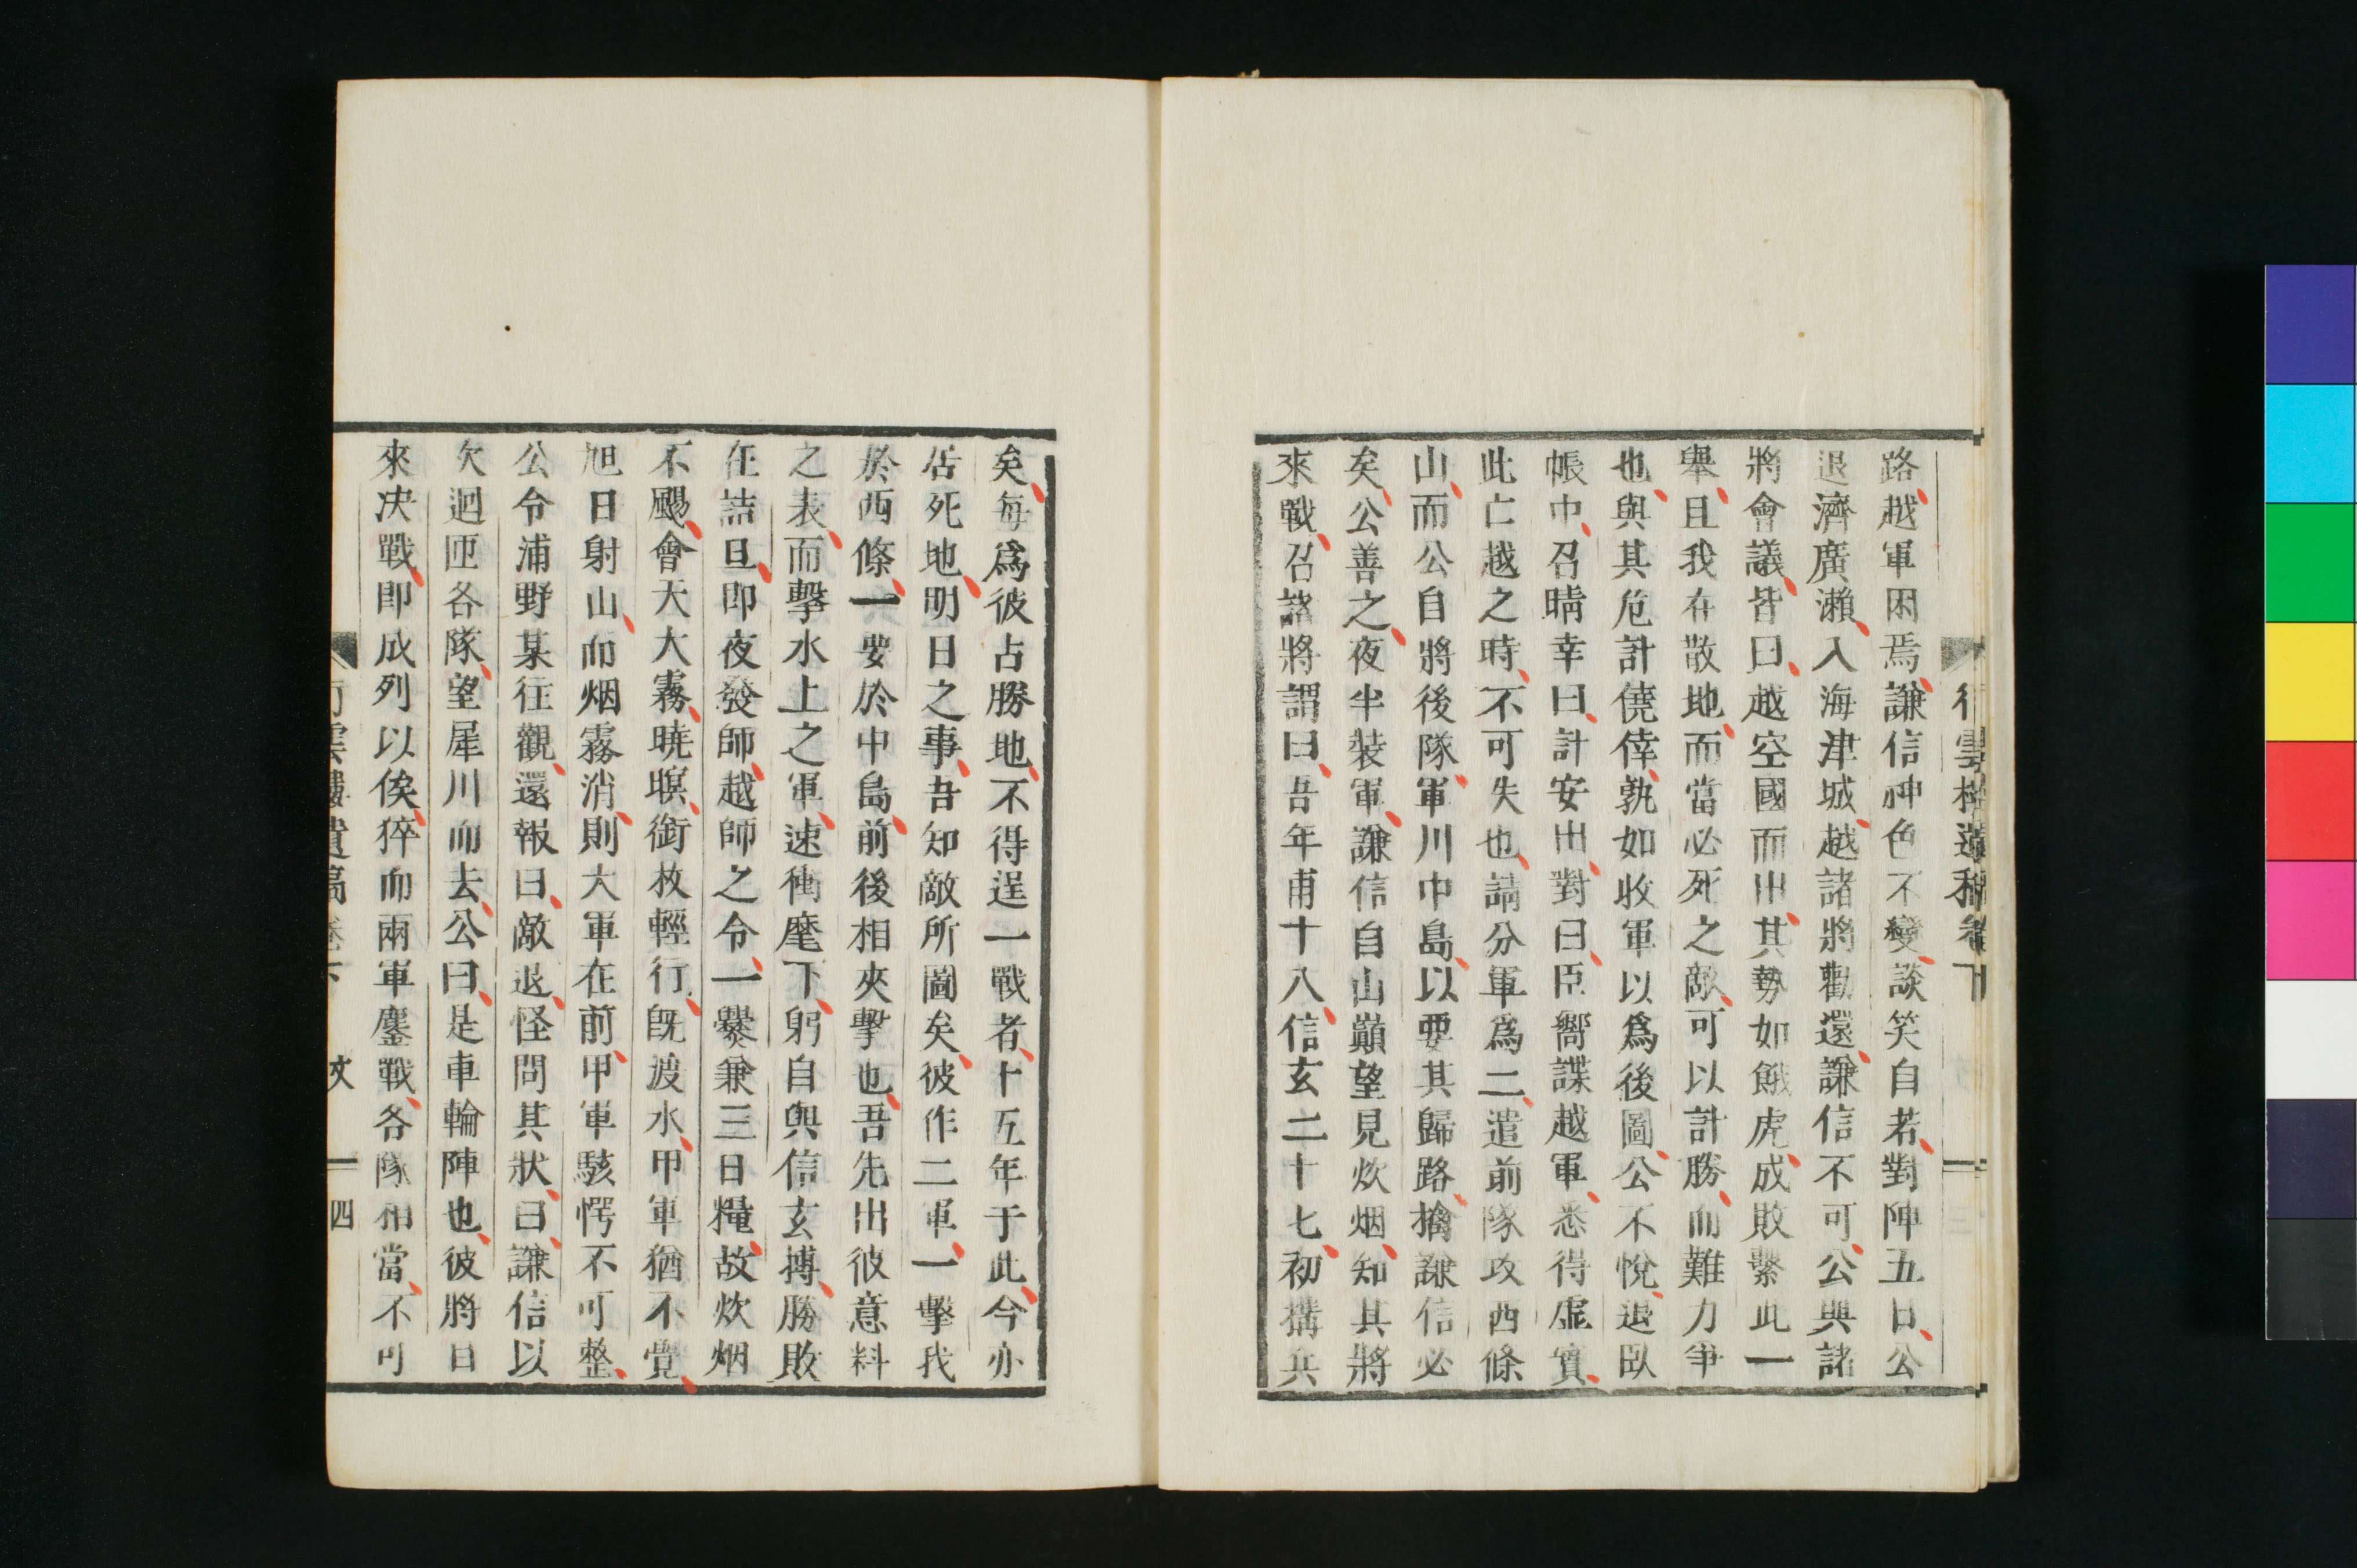 路越軍困焉謙信神色不變談笑自若對陣五日公
退濟廣瀨入海津城越諸將勸還謙信不可公與諸
將會議皆曰越空國而出其勢如餓虎成敗繫此一
舉且我在散地而當必死之敵可以計勝而難力爭
也與其危計僥倖孰如收軍以爲後圖公不悅退臥
帳中召晴幸曰計安出對曰臣嚮諜越軍悉得虛實
此亡越之時不可失也請分軍爲二遣前隊攻西條
山而公自將後隊軍川中島以要其歸路擒謙信必
矣公善之夜半裝軍謙信自山巓望見炊烟知其將
來戰召諸將謂曰吾年甫十八信玄二十七初搆兵
矣每爲彼占勝地不得逞一戰者十五年于此今亦
居死地明日之事吾知敵所圖矣彼作二軍一擊我
於西條一要於中島前後相夾擊也吾先出彼意料
之表而擊水上之軍速衝麾下躬自與信玄搏勝敗
在詰旦卽夜發師越師之令一爨兼三日糧故炊烟
不颺會天大霧曉暝銜枚輕行旣渡水甲軍猶不覺
旭日射山而烟霧消則大軍在前甲軍駭愕不可整
公令浦野某往觀還報曰敵退怪問其狀曰謙信以
次迴匝各隊望犀川而去公曰是車輪陣也彼將日
來决戰卽成列以俟猝而兩軍鏖戰各隊相當不可
行雲樓遺稿卷下 文 四